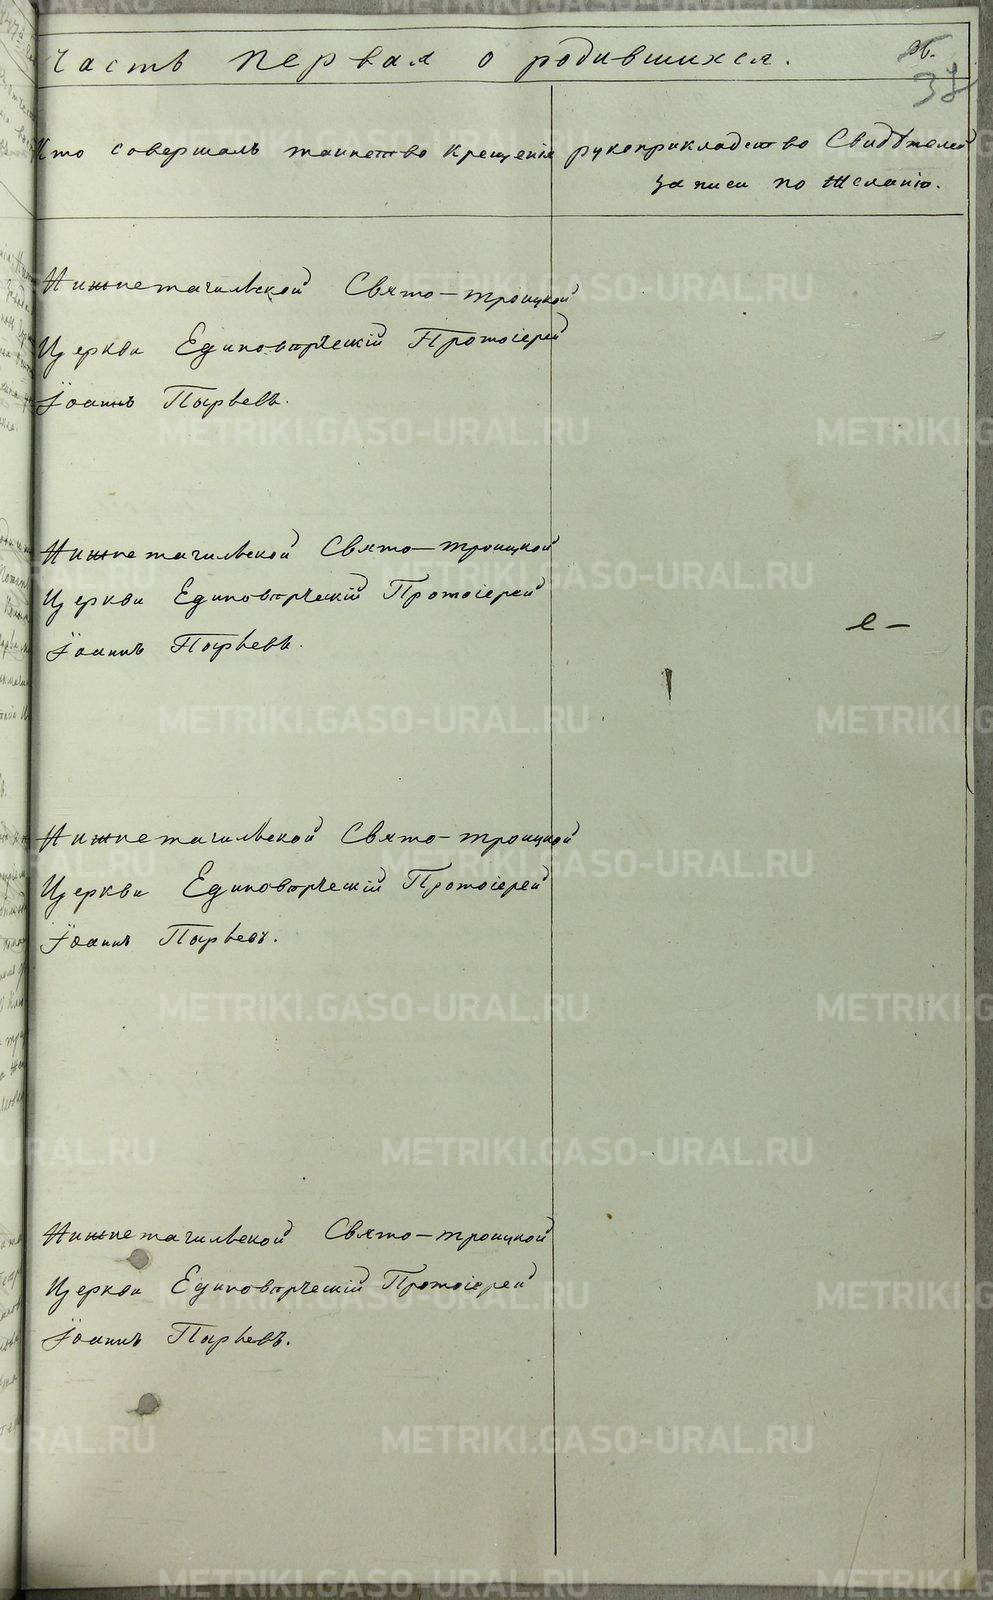 Часть первая о родившихся.
Кто совершалъ таинство крещенія
рукоприкладство Свидѣтелей
записи по желанію.
Нижнетагильской Свято-троицкой
Церкви Единовѣрческій Протоіерей
Іоаннъ Пырьевъ.
Нижнетагильской Свято-троицкой
Церкви Единовѣрческій Протоіерей
Іоаннъ Пырьевъ.
Нижнетагильской Свято-троицкой
Церкви Единовѣрческій Протоіерей
Іоаннъ Пырьевъ.
Нижнетагильской Свято-троицкой
Церкви Единовѣрческій Протоіерей
Іоаннъ Пырьевъ.
METRIKI.GASO-URAL.RU